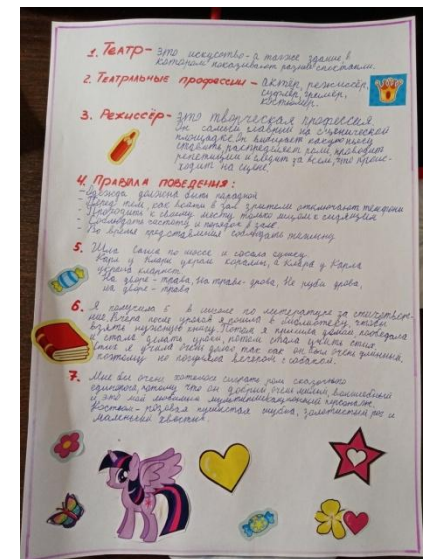 1. Театр - это искусство, а также здание, в
котором показывают разные спектакли.
2. Театральные профессии - актёр, режиссёр,
суфлёр, гримёр,
костюмер.
3. Режиссёр - это творческая профессия.
Он самый главный на сценической
площадке. Он выбирает какую пьесу
ставить, распределяет роли, проводит
репетиции и следит за всем, что проис-
ходит на сцене.
4. Правила поведения:
- Одежда должна быть нарядной
- Перед тем, как войти в зал зрители отключают телефоны
- Проходить к своему месту только лицом к сидящим
- Соблюдать чистоту и порядок в зале
- Во время представления соблюдать тишину
5. Шла Саша по шоссе и сосала сушку
Карл у Клары украл кораллы, а Клара у Карла
украла кларнет.
На дворе - трава, на траве - дрова. Не руби дрова,
на дворе - трава
6. Я получила 5 в школе по литературе за стихотворе-
ние. Вчера после уроков я пошла в библиотеку, чтобы
взять нужную книгу. Потом я пришла домой, пообедала
и стала делать уроки, потом стала учить стих
Стих я учила очень долго так как он был очень длинный,
поэтому не погуляла вечером с собакой.
7. Мне бы очень хотелось сыграть роль сказочного
единорога, потому что он добрый, очень милый, волшебный
и это мой любимый мультипликационный персонаж.
Костюм - розовая пушистая шубка, золотистый рог и
маленький хвостик.